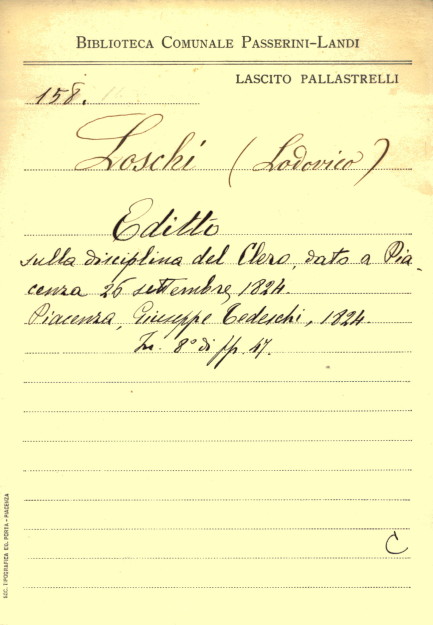 BIBLIOTECA COMUNALE PASSERINI-LANDI
LASCITO PALLASTRELLI
158.
Loschi (Lodovico)
Editto
sulla disciplina del Clero, dato a Pia-
cenza 26 settembre 1824.
Piacenza, Giuseppe Tedeschi, 1824.
In 8° di pp. 47.
C
SOC. TIPOGRAFICA ED. PORTA - PIACENZA